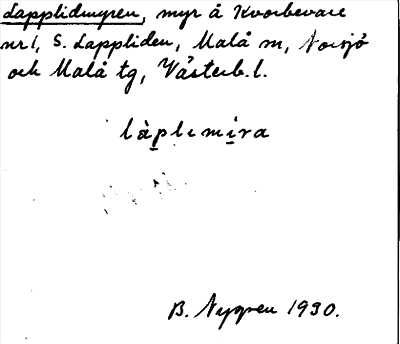 Lapplidmyren, myr å Kvorbevare
nr 1, S. Lappliden, Malå sn, Norsjö
och Malå tg, Västerb. l.
làplɩmíra
B. Nygren 1930.